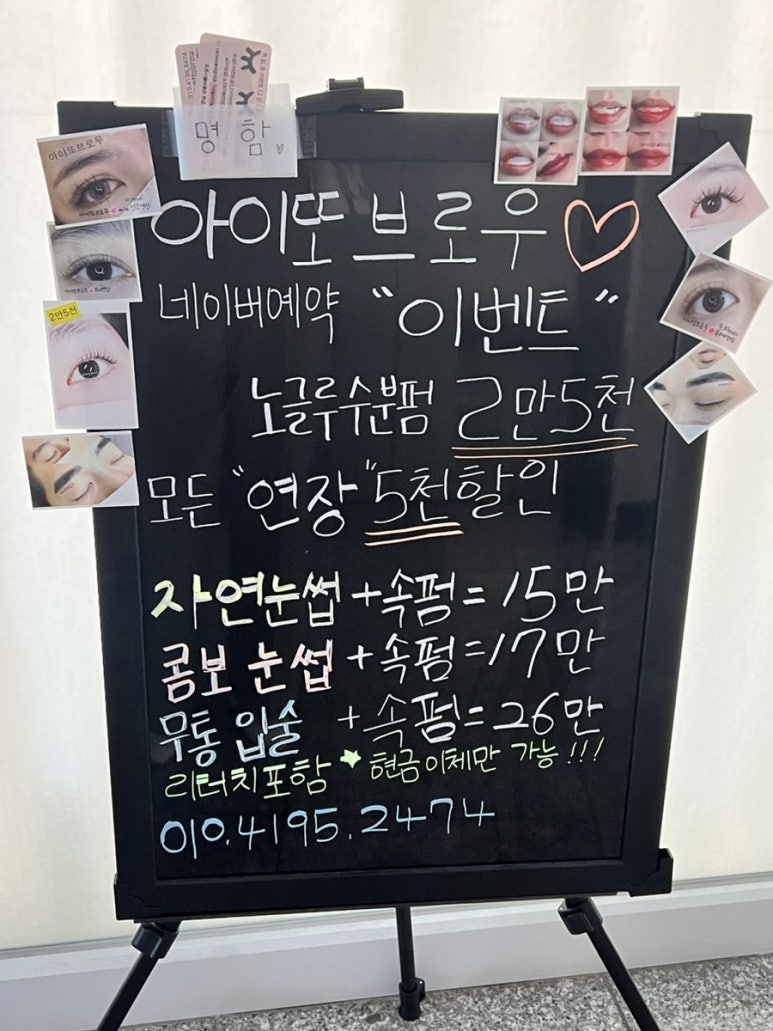 명함
아이또브로우
아이또브로우♡
네이버예약 "이벤트"
노글루수분펌 2만5천
2만5천
모든 "연장" 5천할인
자연눈썹 + 속펌 = 15만
콤보 눈썹 + 속펌 = 17만
무통 입술 + 속펌 = 26만
리터치포함 ★ 현금이체만 가능!!!
010.4195.2474